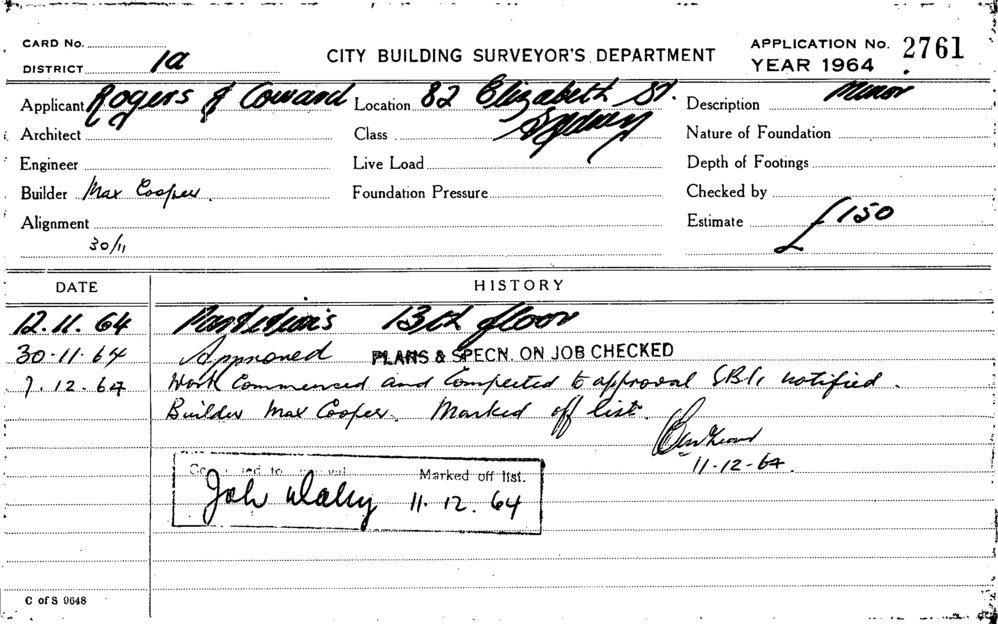 CARD No.
DISTRICT 1a
CITY BUILDING SURVEYOR'S DEPARTMENT
APPLICATION No. 2761
YEAR 1964
Applicant Rogers & Coward Location 82 Elizabeth St. Description Minor
Sydney
Architect Class Nature of Foundation
Engineer Live Load Depth of Footings
Builder Max Cooper. Foundation Pressure Checked by
Alignment Estimate £150
30/11
DATE HISTORY
12.11.64 13th floor
30.11.64 Approved PLANS & SPECN. ON JOB CHECKED
12.64 Work Commenced and Completed to approval notified.
Builder Max Cooper. Marked off list.
11.12.64.
Marked off list.
11.12.64
C of S 9648